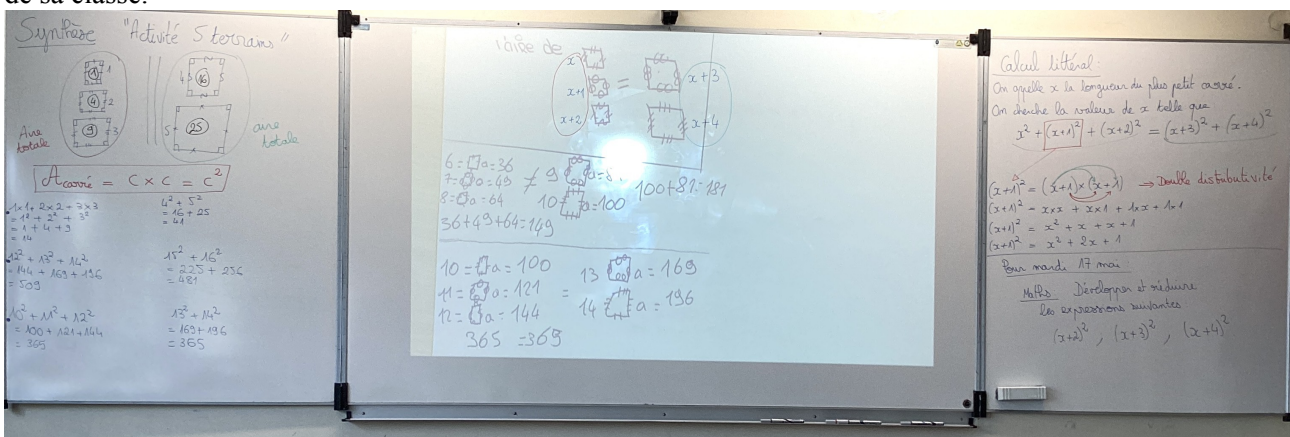 de sa classe.
Synthèse "Activité 5 terrains"
1 1
4 2
9 3
4 16
5 25
Aire totale
aire totale
A carré = C × C = C²
1×1 + 2×2 + 3×3
= 1² + 2² + 3²
= 1 + 4 + 9
= 14
4² + 5²
= 16 + 25
= 41
12² + 13² + 14²
= 144 + 169 + 196
= 509
15² + 16²
= 225 + 256
= 481
10² + 11² + 12²
= 100 + 121 + 144
= 365
13² + 14²
= 169 + 196
= 365
l'aire de
x
x+1
x+2
=
x+3
x+4
6 = a = 36
7 = a = 49
8 = a = 64
36+49+64=149
≠
9
10 a = 100
100+81=181
10 = a = 100
11 = a = 121
12 = a = 144
365
=
13 a = 169
14 a = 196
=365
Calcul littéral :
On appelle x la longueur du plus petit carré.
On cherche la valeur de x telle que
x² + (x+1)² + (x+2)² = (x+3)² + (x+4)²
(x+1)² = (x+1)×(x+1) ⇒ Double distributivité
(x+1)² = x×x + x×1 + 1×x + 1×1
(x+1)² = x² + x + x + 1
(x+1)² = x² + 2x + 1
Pour mardi 17 mai :
Maths Développer et réduire
les expressions suivantes
(x+2)² , (x+3)² , (x+4)²